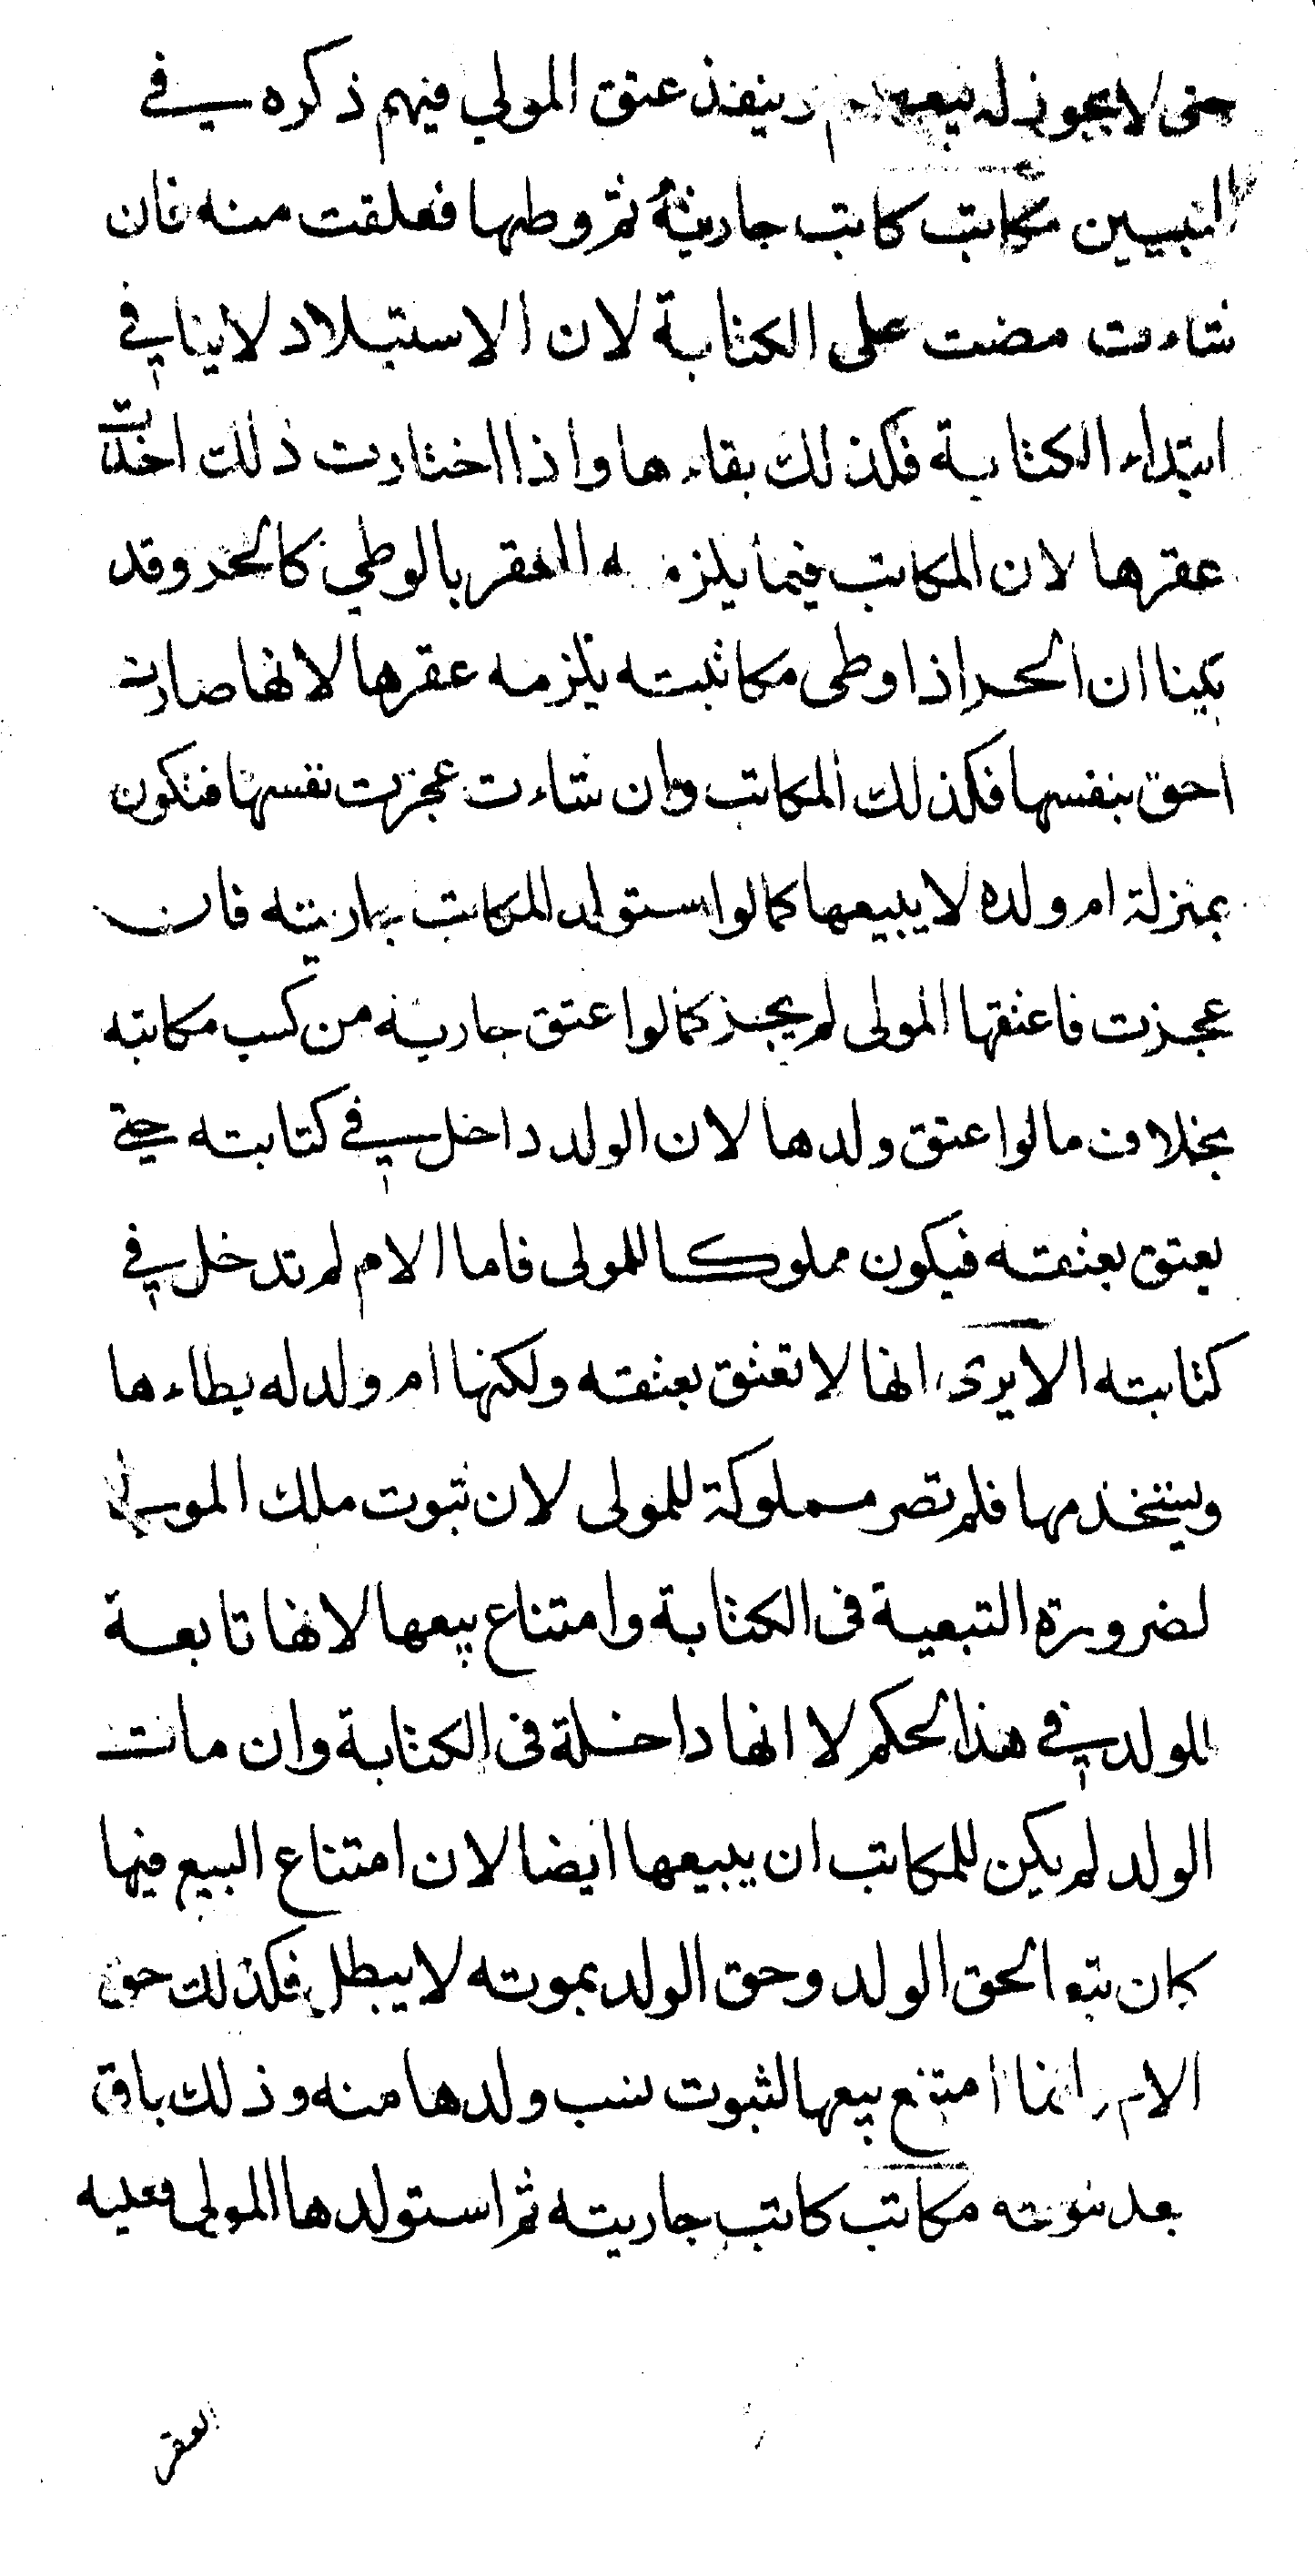 حتى لا يجوز له بيعهم وينفذ عتق المولي فيهم ذكره في
التبيين مكاتب كاتب جاريته ثم وطها فعلقت منه فان
شاءت مضت على الكتابة لان الاستيلاد لا ينافي
ابتداء الكتابة فكذلك بقاءها واذا اختارت ذلك اخذت
عقرها لان المكاتب فيما يلزمه العقر بالوطي كالحر وقد
بينا ان الحر اذا وطى مكاتبته يلزمه عقرها لانها صارت
احق بنفسها فكذلك المكاتب وان شاءت عجزت نفسها فتكون
بمنزلة ام ولده لا يبيعها كما لو استولد المكاتب جاريته فان
عجزت فاعتقها المولى لم يجز كما لو اعتق جارية من كسب مكاتبه
بخلاف ما لو اعتق ولدها لان الولد داخل في كتابته حتى
يعتق بعتقه فيكون مملوكا للمولى فاما الام لم تدخل في
كتابته الا يرى انها لا تعتق بعتقه ولكنها ام ولد له يطاءها
ويستخدمها فلم تصر مملوكة للمولى لان ثبوت ملك المولى
لضرورة التبعية فى الكتابة وامتناع بيعها لانها تابعة
للولد في هذا الحكم لا انها داخلة فى الكتابة وان مات
الولد لم يكن للمكاتب ان يبيعها ايضا لان امتناع البيع فيها
كان تبعا لحق الولد وحق الولد بموته لا يبطل فكذلك حق
الام وانما امتنع بيعها لثبوت نسب ولدها منه وذلك باق
بعد موته مكاتب كاتب جاريته ثم استولدها المولى فعليه
العقر